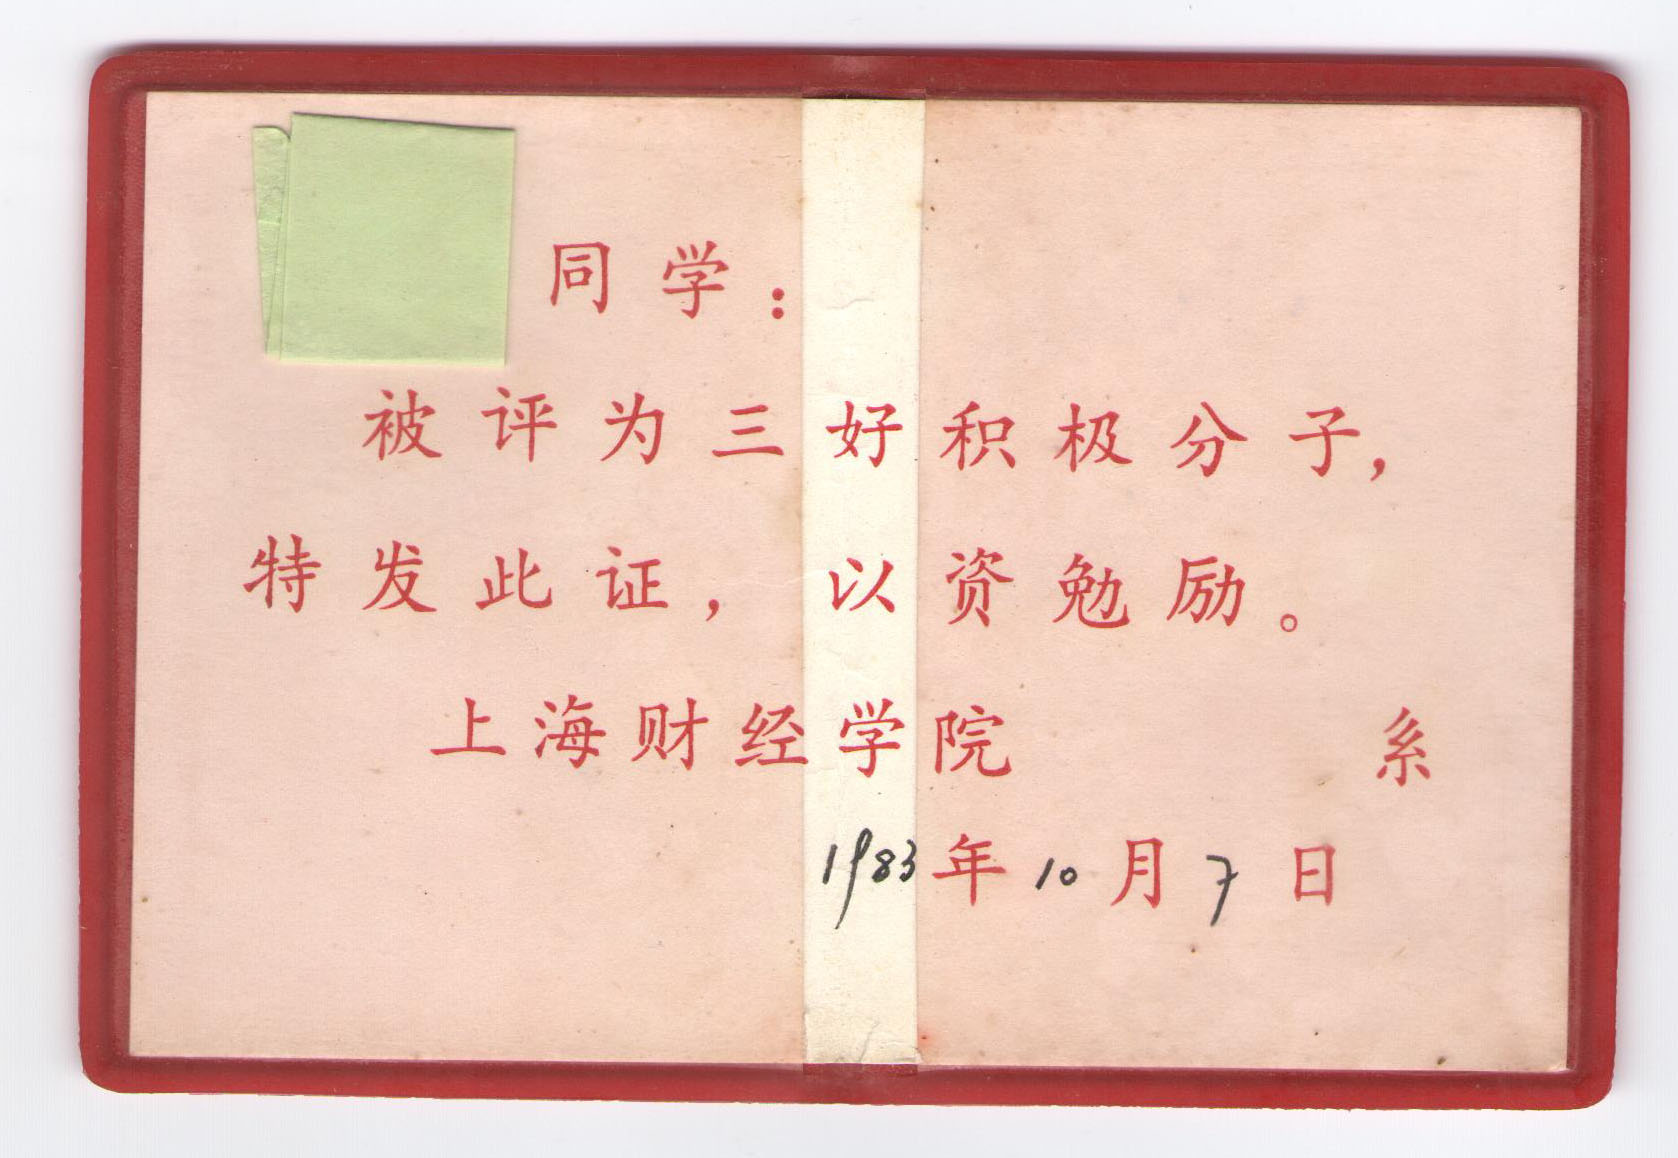 同学：
被评为三好积极分子，
特发此证，以资勉励。
上海财经学院 系
1983年10月7日